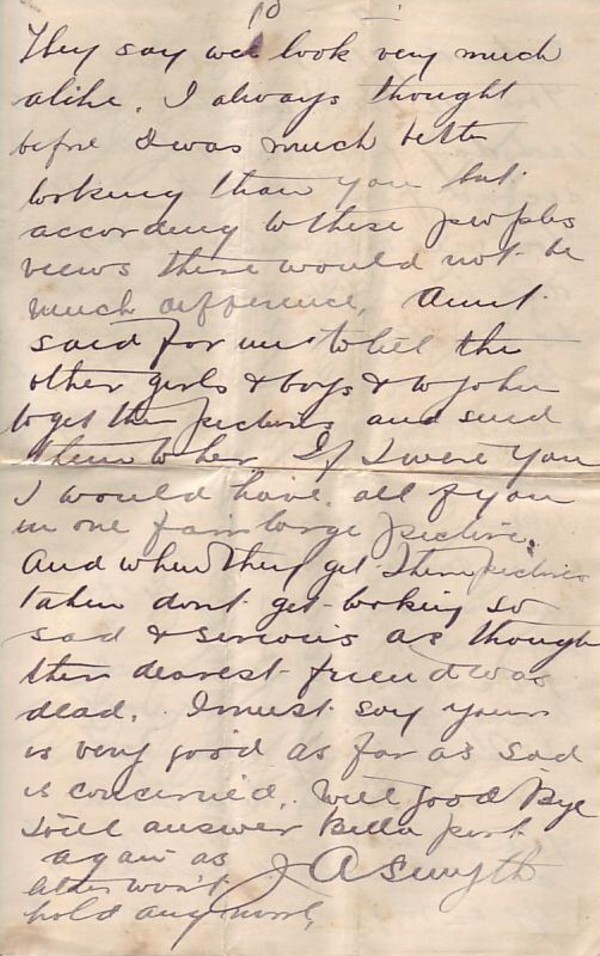 10
They say we look very much
alike. I always thought
before I was much better
looking than you but
according to these peoples
views there would not be
much difference, Aunt
said for us to tell the
other girls & boys & to John
to get their pictures and send
them to her If I were you
I would have all of you
in one fair large picture.
And when they get them pictures
taken dont get looking so
sad & serious as though
their dearest friend was
dead. I must say yours
is very good as far as sad
is concerned, Well good Bye
will answer Bella part
again as
letter won't
hold any more,
J A Smyth